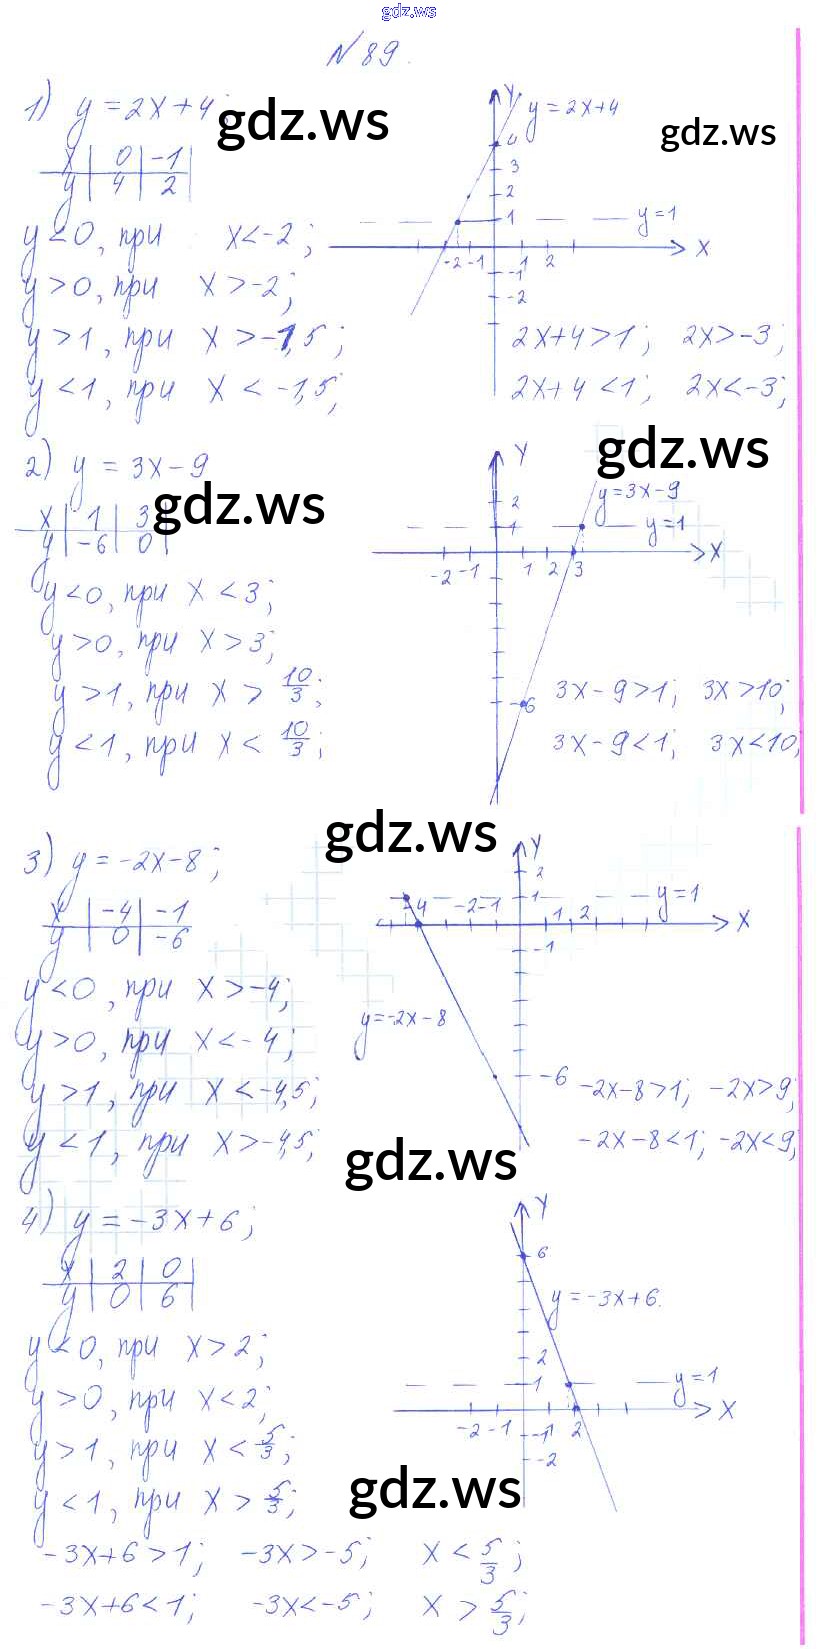 gdz.ws
№ 89.
1) y = 2x+4; gdz.ws
x | 0 | -1
y | 4 | 2
y<0, при x<-2;
y>0, при x>-2;
y>1, при x>-1,5;
y<1, при x<-1,5;
Y
y=2x+4
gdz.ws
4
3
2
1
y=1
-2 -1 1 2 X
-1
-2
2x+4>1; 2x>-3;
2x+4<1; 2x<-3;
gdz.ws
2) y = 3x-9
gdz.ws
x | 1 | 3
y | -6 | 0
y<0, при x<3;
y>0, при x>3;
y>1, при x> 10/3;
y<1, при x< 10/3;
Y
2
y=3x-9
1
y=1
-2 -1 1 2 3 X
-6
3x-9>1; 3x>10;
3x-9<1; 3x<10;
gdz.ws
3) y = -2x-8;
x | -4 | -1
y | 0 | -6
y<0, при x>-4;
y>0, при x<-4;
y>1, при x<-4,5;
y<1, при x>-4,5;
Y
2
1
y=1
-4 -2 -1 1 2 X
-1
y=-2x-8
-6
-2x-8>1; -2x>9;
-2x-8<1; -2x<9;
gdz.ws
4) y = -3x+6;
x | 2 | 0
y | 0 | 6
y<0, при x>2;
y>0, при x<2;
y>1, при x< 5/3;
y<1, при x> 5/3;
Y
6
y=-3x+6.
2
1
y=1
-2 -1 -1 2 X
-2
gdz.ws
-3x+6>1; -3x>-5; x< 5/3;
-3x+6<1; -3x<-5; x> 5/3;